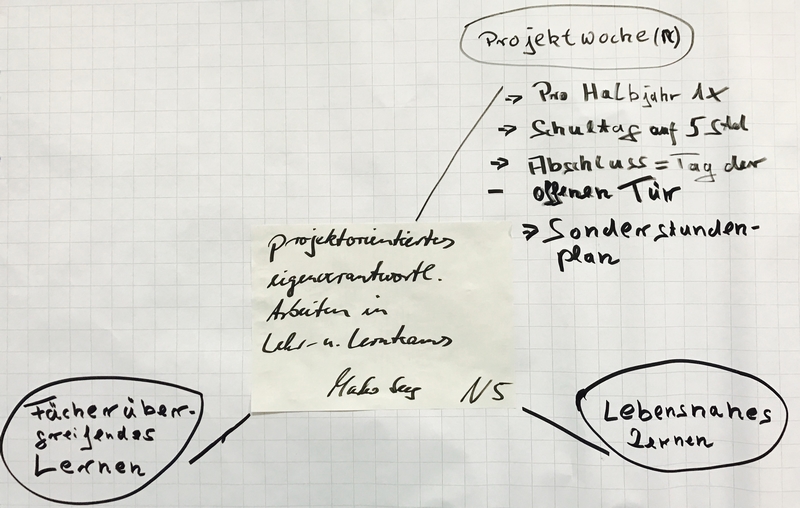 Projektwoche(n)
→ Pro Halbjahr 1x
→ Schultag auf 5 Std
→ Abschluss = Tag der
- offenen Tür
⇒ Sonderstunden-
plan
projektorientiertes
eigenverantwortl.
Arbeiten in
Lehr- u. Lernteams
N5
Fächerüber-
greifendes
Lernen
Lebensnahes
Lernen